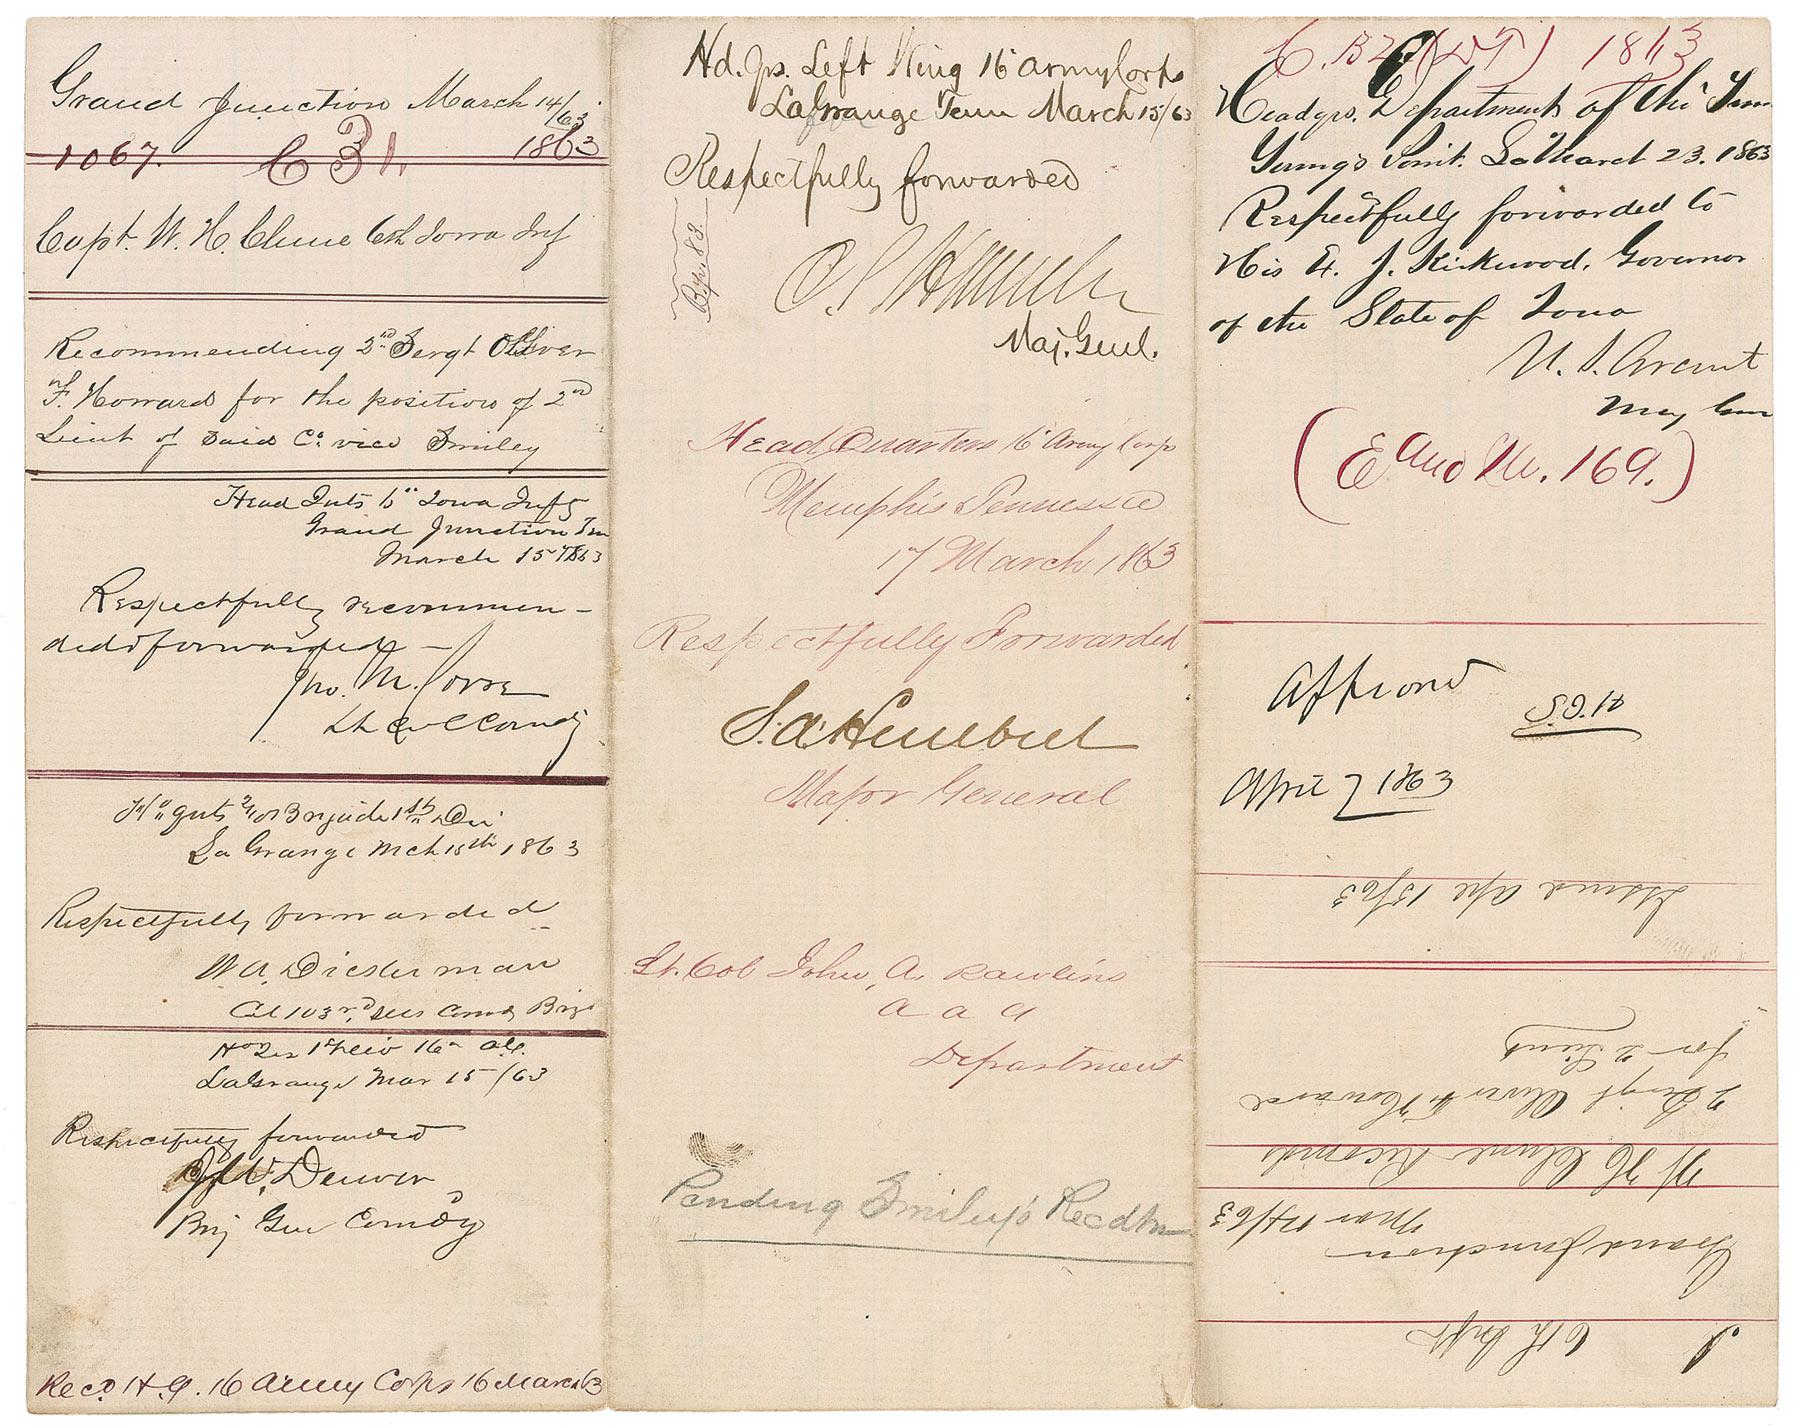 Grand Junction March 14/63
1067. C 31. 1863
Capt. W. H. Clune 6th Iowa Inf
Recommending 2nd Sergt Oliver
F. Howard for the position of 2nd
Lieut of said Co. vice Smiley
Head Qrts 6" Iowa Infy
Grand Junction Ten
March 15th 1863
Respectfully recommen-
ded & forwarded -
Jno. M. Corse
Lt Col Comdg
Hd qrts Brigade 1st Div
La Grange Mch 15th 1863
Respectfully forwarded
W A Dieterman
Col 103rd Ills Comdg Brig
Hd Qrs 1st Div 16th A.C.
LaGrange Mar 15/63
Respectfully forwarded
J W. Denver
Brig Gen Comdg
Recd H.Q. 16 Army Corps 16 March 63
Hd. Qrs. Left Wing 16 Army Corps
LaGrange Tenn March 15/63
Respectfully forwarded
83.
C. S. Hamilton
Maj. Genl.
Head Quarters 16 Army Corps
Memphis Tennessee
17 March 1863
Respectfully Forwarded
S. A. Hurlbut
Major General
Lt. Col John, A. Rawlins
A A G
Department
Pending Smiley's Recdtn
C. B 27 (DT) 1863
Headqrs. Department of the Tenn
Young's Point. La March 23. 1863
Respectfully forwarded to
His E. J. Kirkwood, Governor
of the State of Iowa
U. S. Grant
Maj Gen
(E and M. 169.)
Approvd
S.J.K
April 7 1863
Issued Apl 13/63
for 2 Lieut
2 Sergt Oliver F. Howard
W H Clune Recomds
Mar 14/63
Grand Junction
I 6th Infy